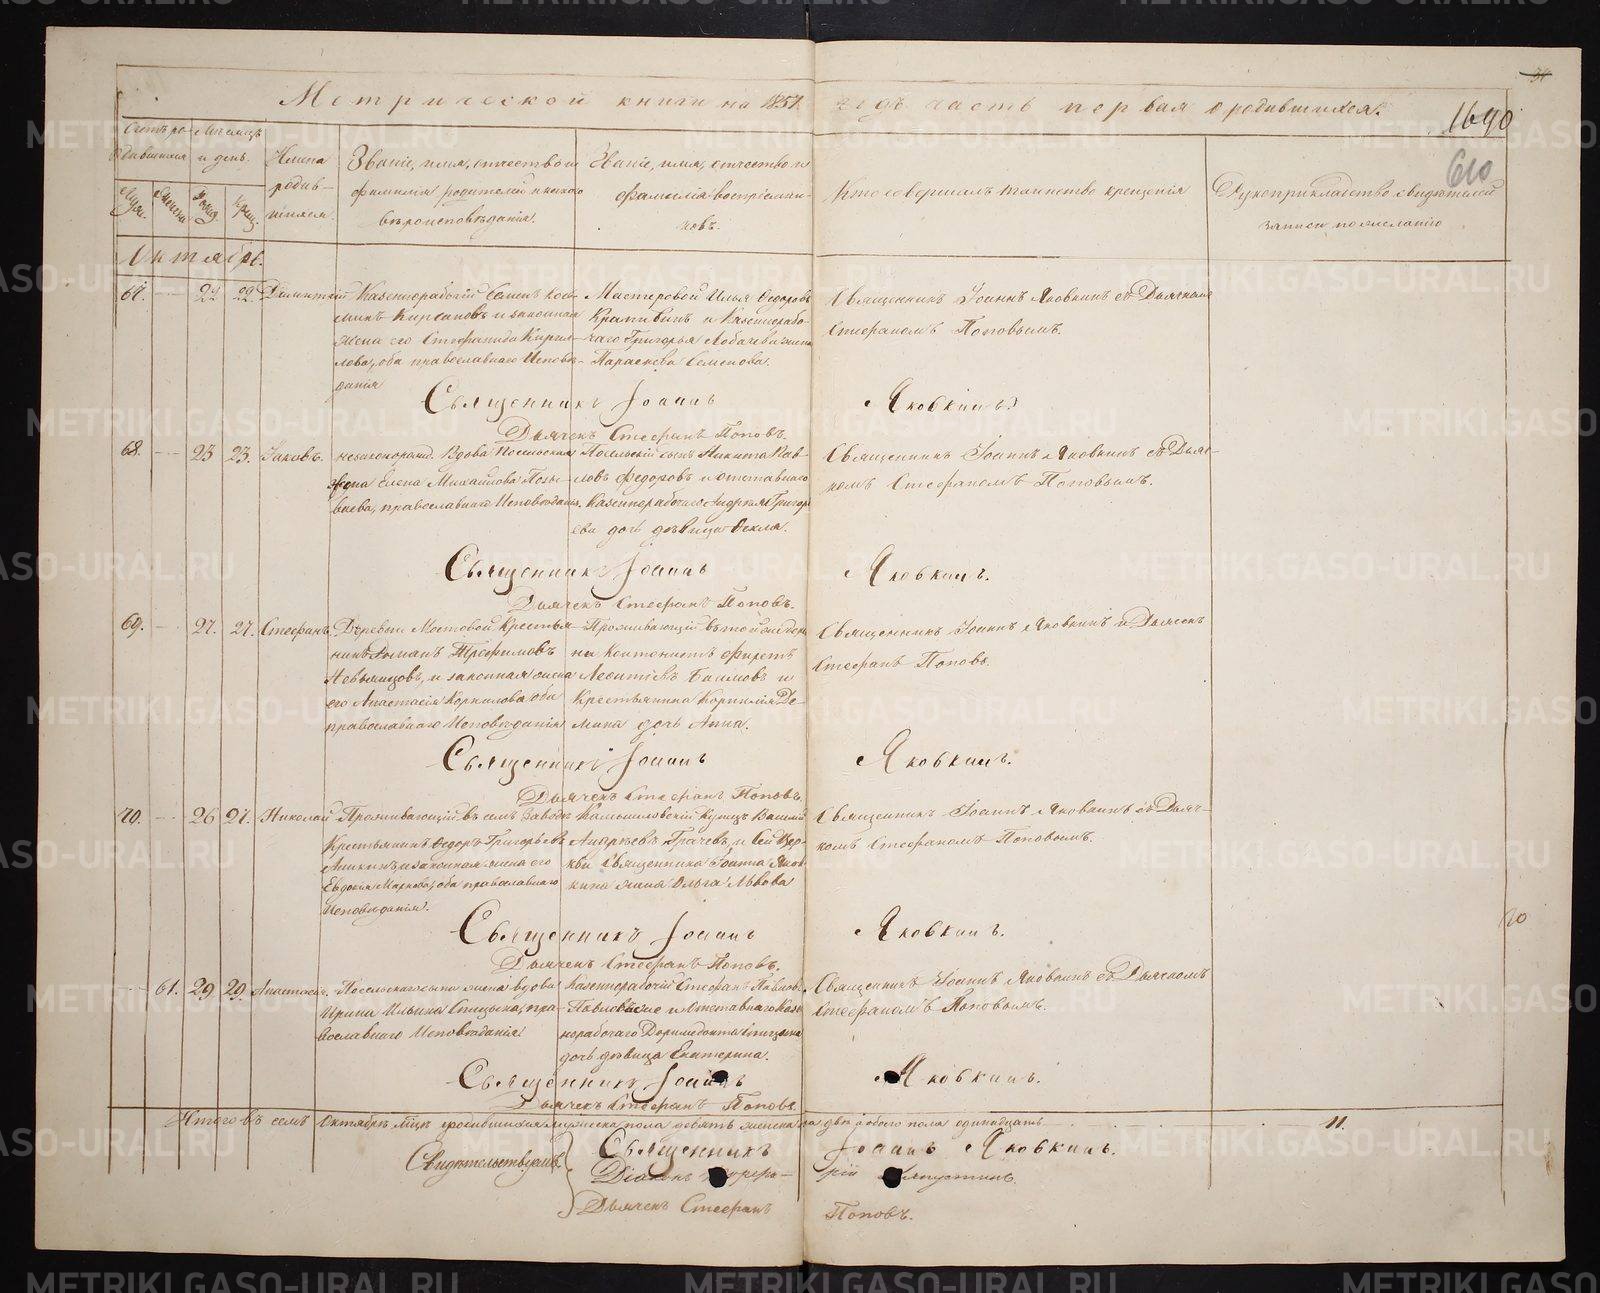 Метрической книги на 1857. годъ часть первая о родившихся.
1690
610
Счетъ ро-
дившихся
Мѣсяцъ
и день.
Муж.
Женска
Рожд.
Крещ.
Имена
родив-
шихся.
Званіе, имя, отчество и
фамилія родителей и какого
вѣроисповѣданія.
Званіе, имя, отчество и
фамилія воспріемни-
ковъ.
Кто совершалъ таинство крещенія
Рукоприкладство свидѣтелей
записи по желанію
Октябрь.
67. 22 22. Димитрій
Казеннорабочій Семенъ Кос-
минъ Кирсановъ и законная
жена его Стефанида Кирил-
лова, оба православнаго Исповѣ-
данія
Мастеровой Илья Ѳедоровъ
Крапивинъ и Казеннорабо-
чаго Григорья Лобачева жена
Параскева Семенова.
Священникъ Іоаннъ Яковкинъ съ Дьячкомъ
Стефаномъ Поповымъ.
Священникъ Іоаннъ Яковкинъ.
Дьячекъ Стефанъ Поповъ.
68. 23 23. Іаковъ.
незаконорожд. Вдова Посельская
жена Елена Михайлова
православнаго Исповѣданія.
Посельскій сынъ Никита Пав-
ловъ Федоровъ и отставнаго
Казеннорабочаго Андрея Григорь
ева дочь дѣвица Ѳекла.
Священникъ Іоаннъ Яковкинъ съ Дьяч-
комъ Стефаномъ Поповымъ.
Священникъ Іоаннъ Яковкинъ.
Дьячекъ Стефанъ Поповъ.
69. 27. 27. Стефанъ.
Деревни Мостовой Крестья-
нинъ Романъ Трефиловъ
и законная жена
его Анастасія Корнилова оба
православнаго Исповѣданія
Проживающій въ той же дерев
ни Кантонистъ
Леонтіевъ и
Крестьянина Корнилія Де-
мина дочь Анна.
Священникъ Іоаннъ Яковкинъ и Дьячекъ
Стефанъ Поповъ.
Священникъ Іоаннъ Яковкинъ.
Дьячекъ Стефанъ Поповъ.
70. 26 27. Николай
Проживающій въ семъ Заводѣ
Крестьянинъ Ѳедоръ Григорьевъ
Аникинъ, и законная жена его
Евдокія Маркова, оба православнаго
Исповѣданія.
Камышловскій Купецъ Василій
Андреевъ Грачевъ, и Сей Цер-
кви Священника Іоанна Яков
кина жена Ольга Львова
Священникъ Іоаннъ Яковкинъ съ Дьяч-
комъ Стефаномъ Поповымъ.
Священникъ Іоаннъ Яковкинъ.
Дьячекъ Стефанъ Поповъ.
70
61. 29 29. Анастасія.
Посельскаго сына жена вдова
Ирина Ильина Спицына, пра-
вославнаго Исповѣданія.
Казеннорабочій Стефанъ Павловъ.
и Отставнаго Казен
норабочаго Доримедонта Спицына
дочь дѣвица Екатерина.
Священникъ Іоаннъ Яковкинъ съ Дьячкомъ
Стефаномъ Поповымъ.
Священникъ Іоаннъ Яковкинъ.
Дьячекъ Стефанъ Поповъ.
Итого въ семъ Октябрѣ мѣцѣ родившихся мужеска пола девять женска два обоего пола одинадцать 11.
Свидѣтельствуемъ
Священникъ Іоаннъ Яковкинъ.
Діаконъ
Дьячекъ Стефанъ Поповъ.
METRIKI.GASO-URAL.RU